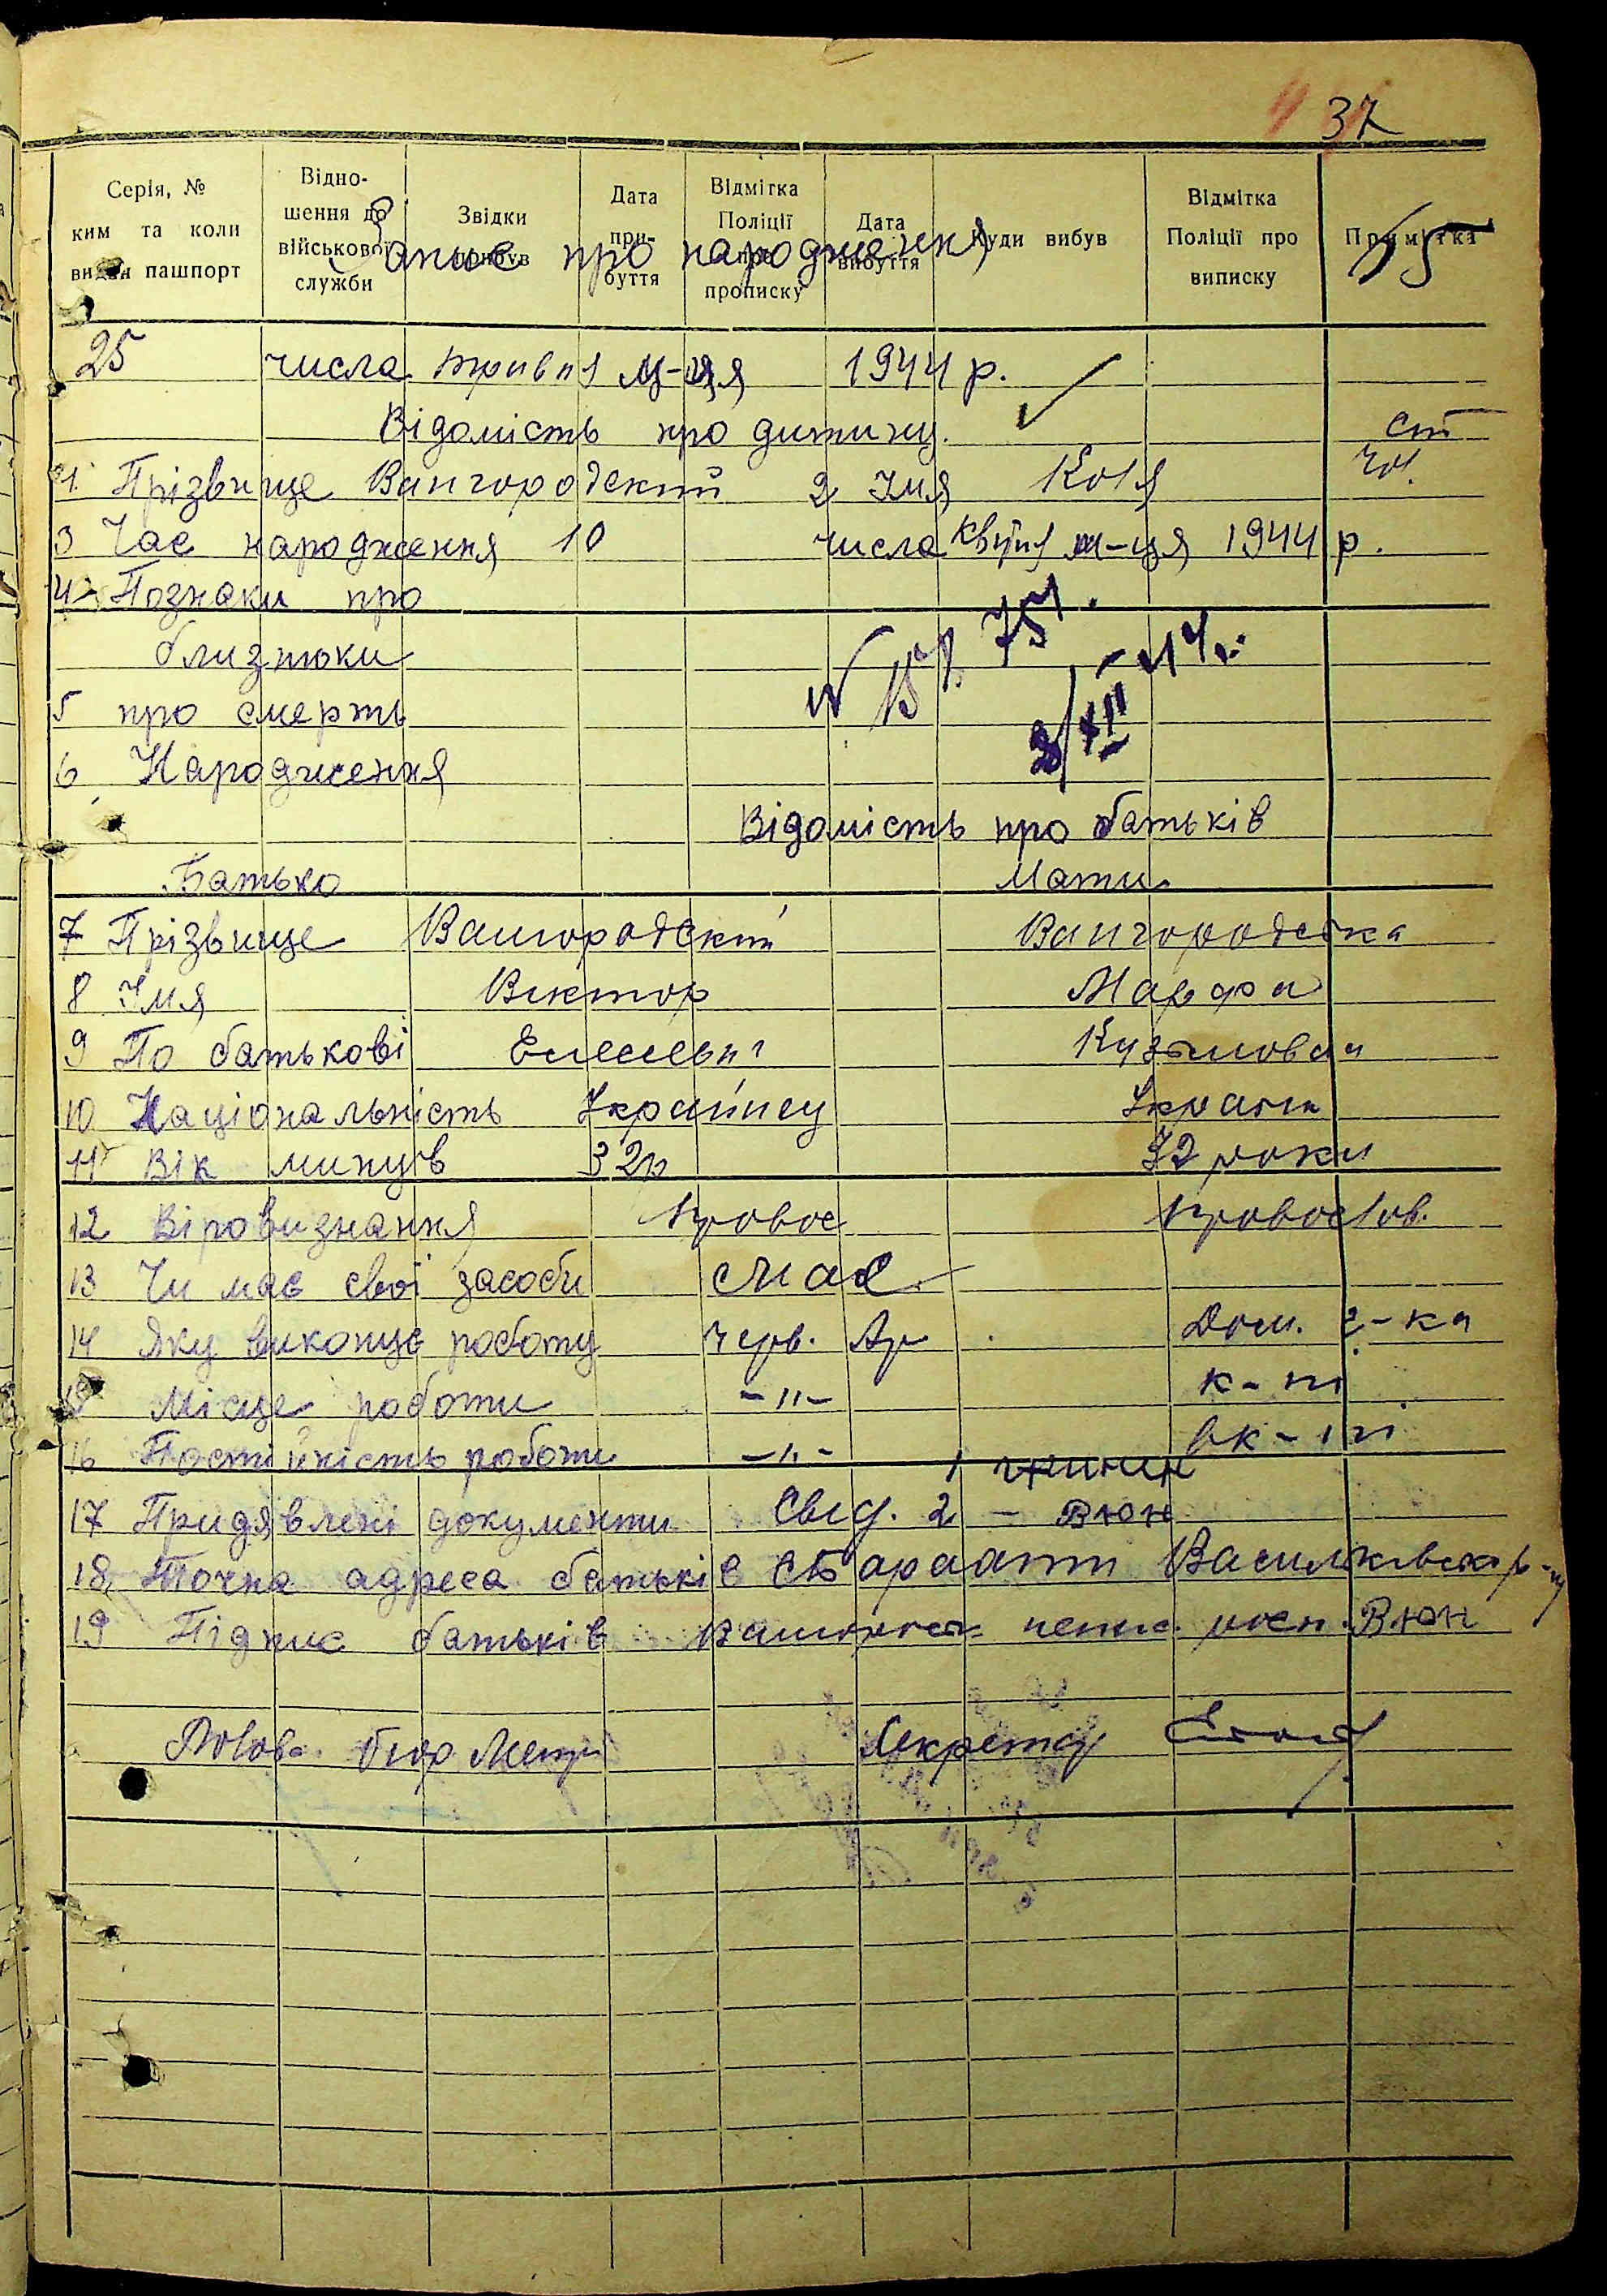 37
Серія, № ким та коли видан пашпорт
Відношення до військової служби
Звідки прибув
Дата прибуття
Відмітка Поліції про прописку
Дата вибуття
Куди вибув
Відмітка Поліції про виписку
Примітка
Запис про народження
25 числа травня м-ця 1944 р.
Відомість про дитину.
1. Прізвище Вангородский 2 Імя Коля
3 Час народження 10 числа квітн м-ця 1944 р.
4 Познаки про
близнюки
5 про смерть
6 Народження
Відомість про батьків
Батько Мати
7 Прізвище Вангородский Вангородська
8 Імя Віктор Марфа
9 По батькові Кузьмовна
10 Національність Українец Україн
11 Вік минув 32р 32 роки
12 Віровизнання Провос Провослов.
13 Чи має свої засоби має
14 Яку виконує роботу Черв. Ар Дом. г-ка
15 Місце роботи -"- к-гі
16 Постійність роботи -"- вк-гі
17 Придявлені документи Свід. 2 - Вюн
18 Точна адреса батьків Васильківськ р-н
19 Підпис батьків Вюн
Голов. бюр Секретар